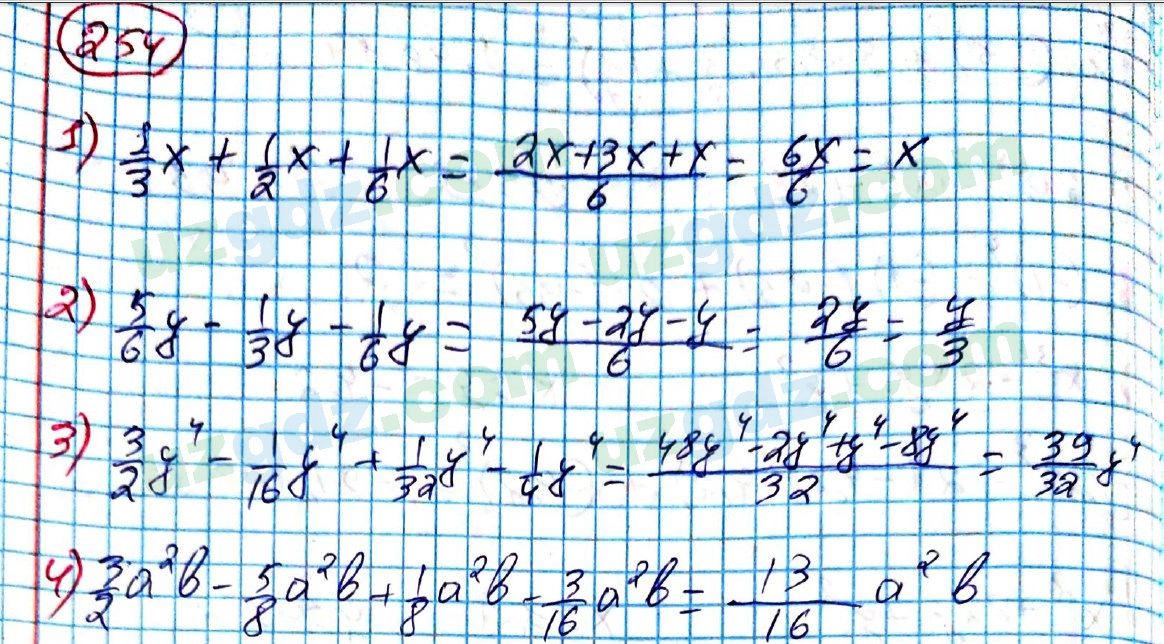 254
1) 1/3 x + 1/2 x + 1/6 x = (2x+3x+x)/6 = 6x/6 = x
2) 5/6 y - 1/3 y - 1/6 y = (5y-2y-y)/6 = 2y/6 = y/3
3) 3/2 y⁴ - 1/16 y⁴ + 1/32 y⁴ - 1/4 y⁴ = (48y⁴-2y⁴+y⁴-8y⁴)/32 = 39/32 y⁴
4) 3/2 a²b - 5/8 a²b + 1/8 a²b - 3/16 a²b = 13/16 a² b
uzgdz.com
uzgdz.com
uzgdz.com
uzgdz.com